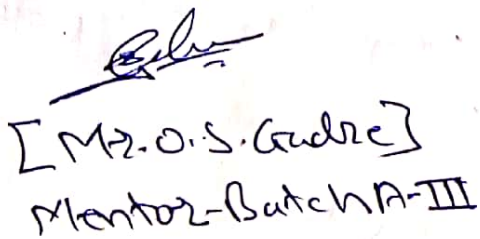 [Mr. O. S. Gudre]
Mentor-Batch A-III